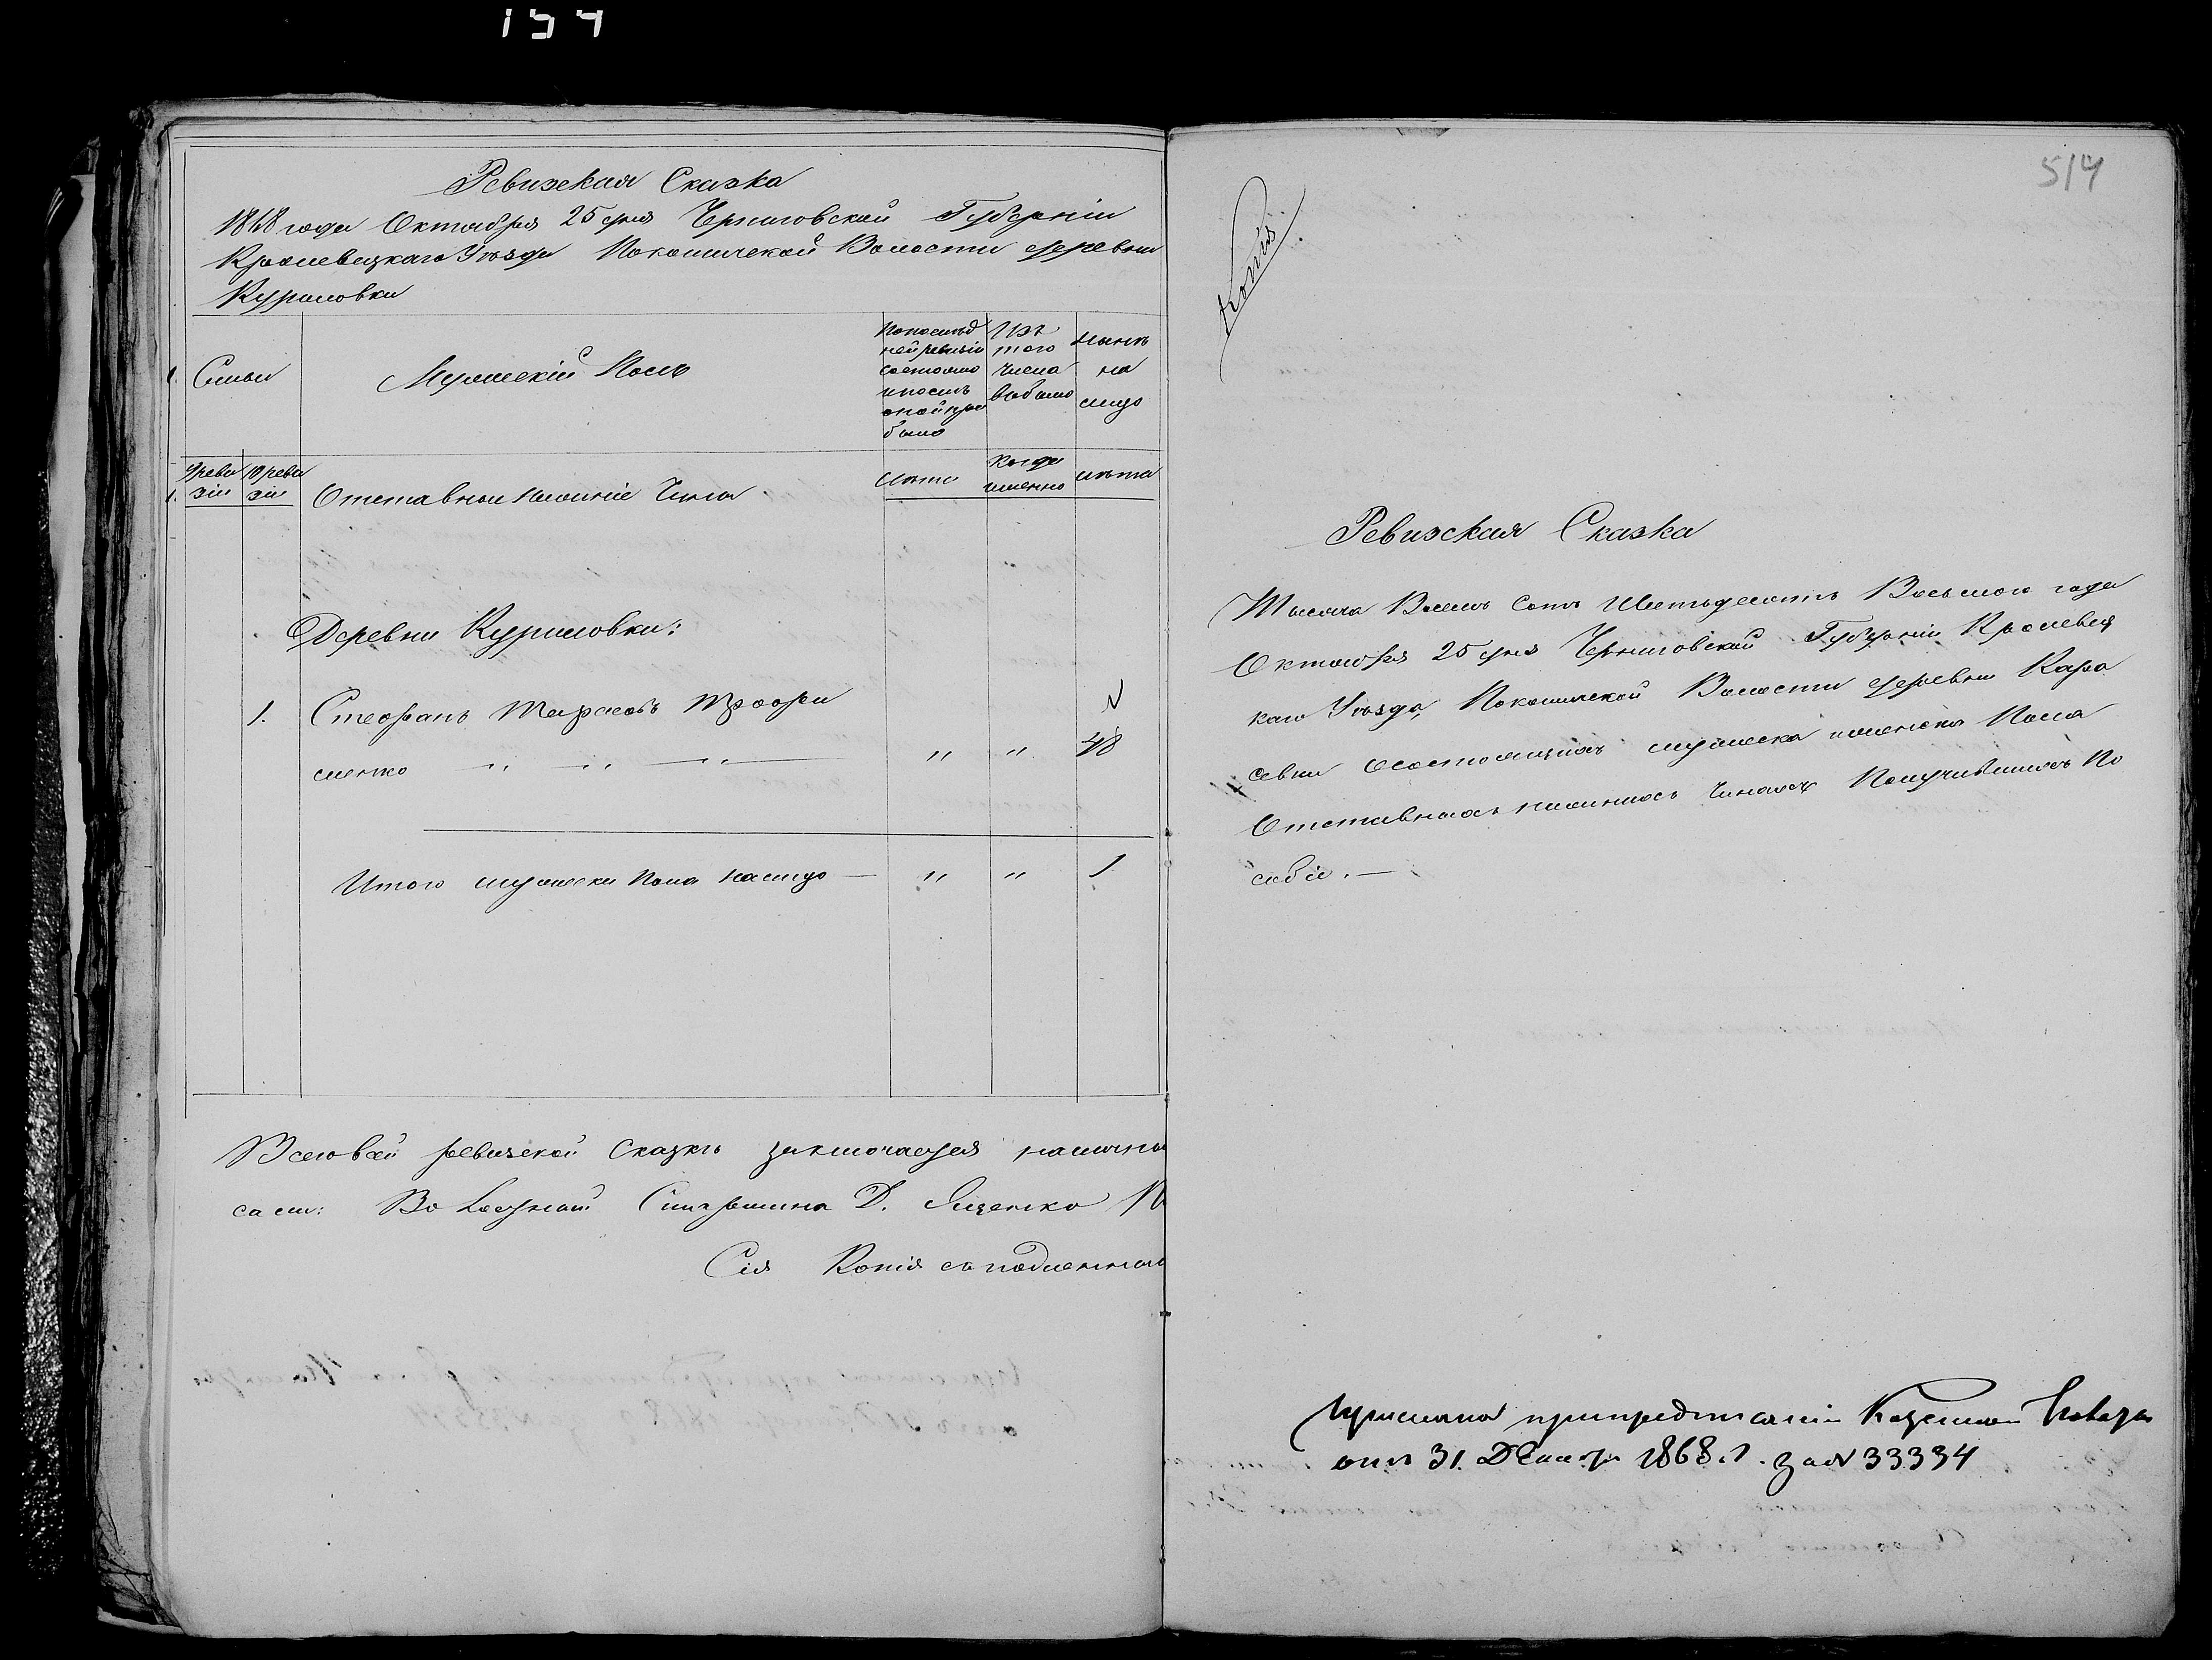 154
Ревизская Сказка
1868 года Октября 25 дня Черниговской Губерніи
Кролевецкаго Уѣзда Покошичской Волости деревни
Куриловки
Семьи
Мужескій Полъ
Попослѣд
ней ревизіи
состояло
ипослѣ
оной при
было
Изъ
того
числа
выбыло
Нынѣ
на
лицо
9 реви
зіи
10 реви
зіи
Отставные нижніе Чины
Лѣта
Когда
именно
лѣта
Деревни Куриловки:
1. Стефанъ Тарасовъ Трофи
менко " " " " " 48
Итого мужеска Пола налицо — " " 1
Всеовой ревизской Сказкѣ заключается
Старшина Д. Яценко
Сія Копія съ подлиннымъ
514
Копія.
Ревизская Сказка
Тысяча Восемь Сотъ Шестьдесятъ Восьмого года
Октября 25 дня Черниговской Губерніи Кролевец
каго Уѣзда, Покошичской Волости деревни Кара
севки Осостоящихъ мужеска иженска Пола
Отставныхъ нижнихъ Чинахъ Получившихъ По
собіе. —
Прислана припредписаніи Казенной Палаты
отъ 31. Декабря 1868. г. за № 33334